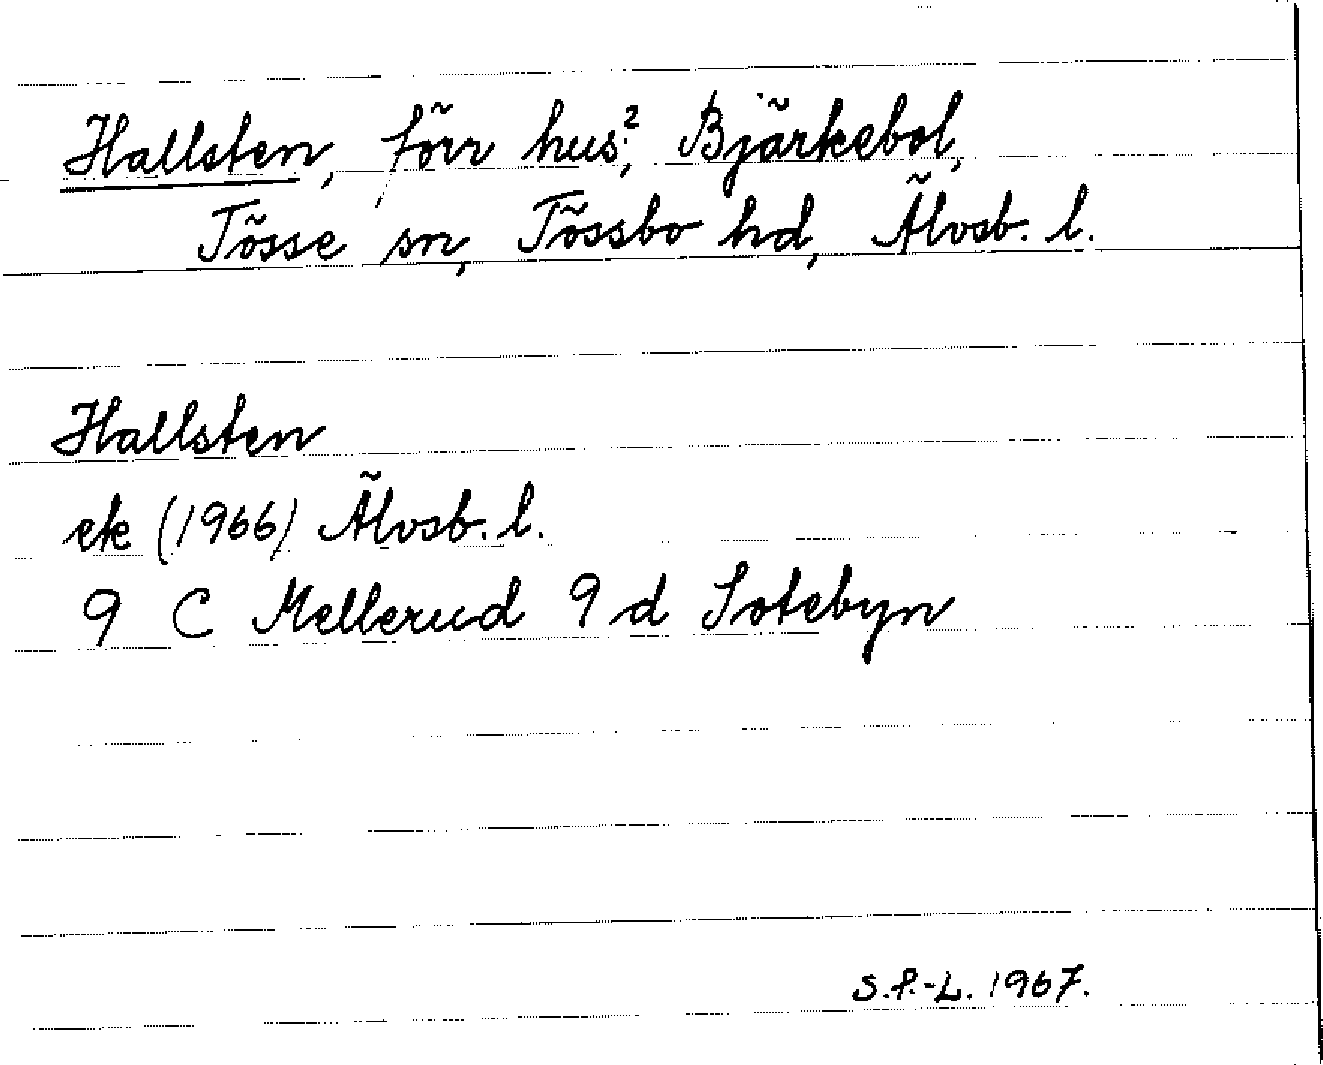 Hallsten, förr hus?², Bjärkebol,
Tösse sn, Tössbo hd, Älvsb. l.
Hallsten
ek (1966) Älvsb. l.
9 C Mellerud 9 d Sotebyn
S.P.-L. 1967.